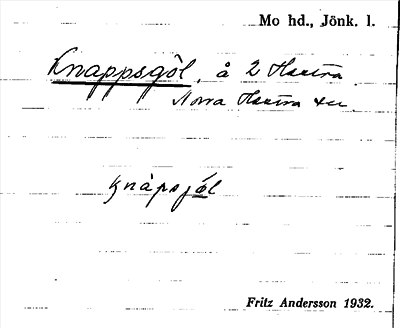 Mo hd., Jönk. l.
Knappsgöl, å 2 Haxtra
Norra Haxtra
knàpsjöl
Fritz Andersson 1932.